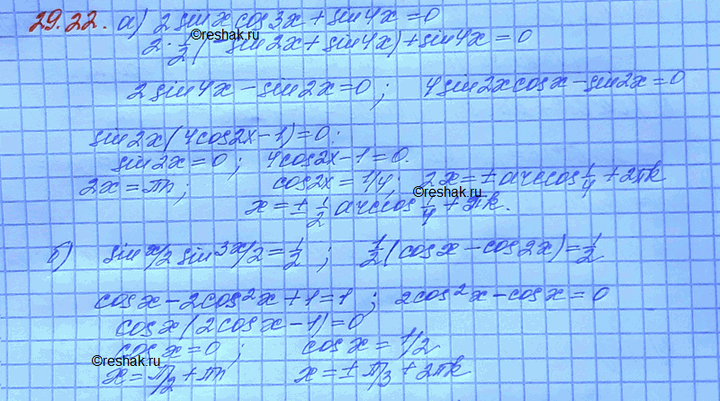 29.22. а) 2 sin x cos 3x + sin 4x = 0
2 · 1/2 (− sin 2x + sin 4x) + sin 4x = 0
©reshak.ru
2 sin 4x − sin 2x = 0 ; 4 sin 2x cos x − sin 2x = 0
sin 2x (4 cos 2x − 1) = 0 :
sin 2x = 0 ; 4 cos 2x − 1 = 0.
2x = πn ; cos 2x = 1/4 ; 2x = ± arccos 1/4 + 2πk
©reshak.ru
x = ± 1/2 arccos 1/4 + πk.
б) sin x/2 sin 3x/2 = 1/2 ; 1/2 (cos x − cos 2x) = 1/2
cos x − 2 cos² x + 1 = 1 ; 2 cos² x − cos x = 0
cos x (2 cos x − 1) = 0
cos x = 0 ; cos x = 1/2
©reshak.ru
x = π/2 + πn x = ± π/3 + 2πk